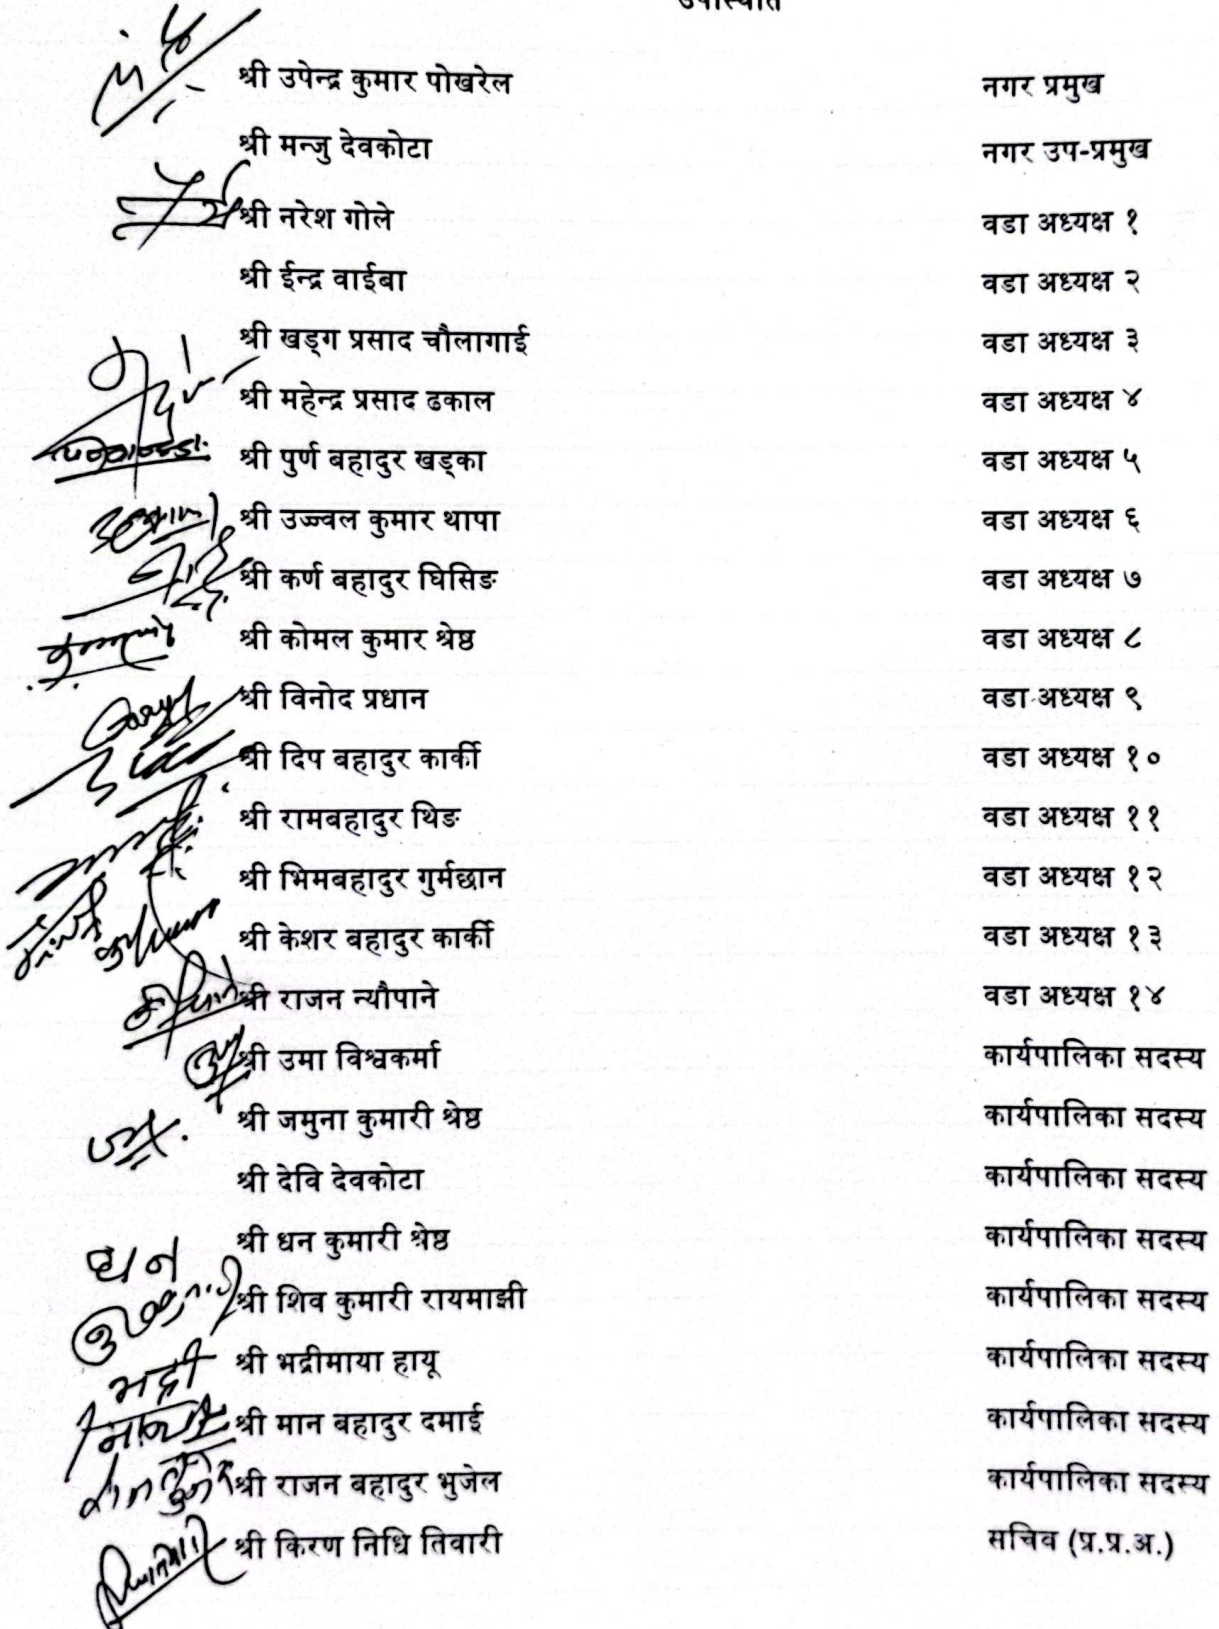 उपस्थिति
श्री उपेन्द्र कुमार पोखरेल नगर प्रमुख
श्री मन्जु देवकोटा नगर उप-प्रमुख
श्री नरेश गोले वडा अध्यक्ष १
श्री ईन्द्र वाईबा वडा अध्यक्ष २
श्री खड्ग प्रसाद चौलागाई वडा अध्यक्ष ३
श्री महेन्द्र प्रसाद ढकाल वडा अध्यक्ष ४
श्री पुर्ण बहादुर खड्का वडा अध्यक्ष ५
श्री उज्ज्वल कुमार थापा वडा अध्यक्ष ६
श्री कर्ण बहादुर घिसिङ वडा अध्यक्ष ७
श्री कोमल कुमार श्रेष्ठ वडा अध्यक्ष ८
श्री विनोद प्रधान वडा अध्यक्ष ९
श्री दिप बहादुर कार्की वडा अध्यक्ष १०
श्री रामबहादुर थिङ वडा अध्यक्ष ११
श्री भिमबहादुर गुर्मछान वडा अध्यक्ष १२
श्री केशर बहादुर कार्की वडा अध्यक्ष १३
श्री राजन न्यौपाने वडा अध्यक्ष १४
श्री उमा विश्वकर्मा कार्यपालिका सदस्य
श्री जमुना कुमारी श्रेष्ठ कार्यपालिका सदस्य
श्री देवि देवकोटा कार्यपालिका सदस्य
धन श्री धन कुमारी श्रेष्ठ कार्यपालिका सदस्य
श्री शिव कुमारी रायमाझी कार्यपालिका सदस्य
भद्री श्री भद्रीमाया हायू कार्यपालिका सदस्य
श्री मान बहादुर दमाई कार्यपालिका सदस्य
श्री राजन बहादुर भुजेल कार्यपालिका सदस्य
श्री किरण निधि तिवारी सचिव (प्र.प्र.अ.)